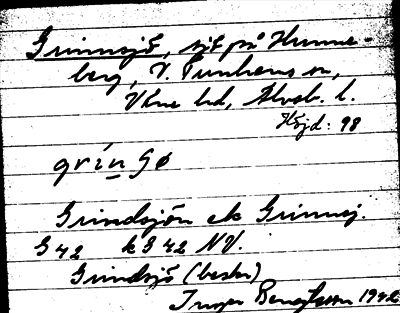 Grinnsjö, sjö på Hunne-
berg, V. Tunhems sn,
Väne hd, Älvsb. l.
Höjd: 98
grín S ø
Grindsjön ek Grinnsj.
G 42 k G 42 NV.
Grindsjö (beskr)
Inger Bengtsson 1942